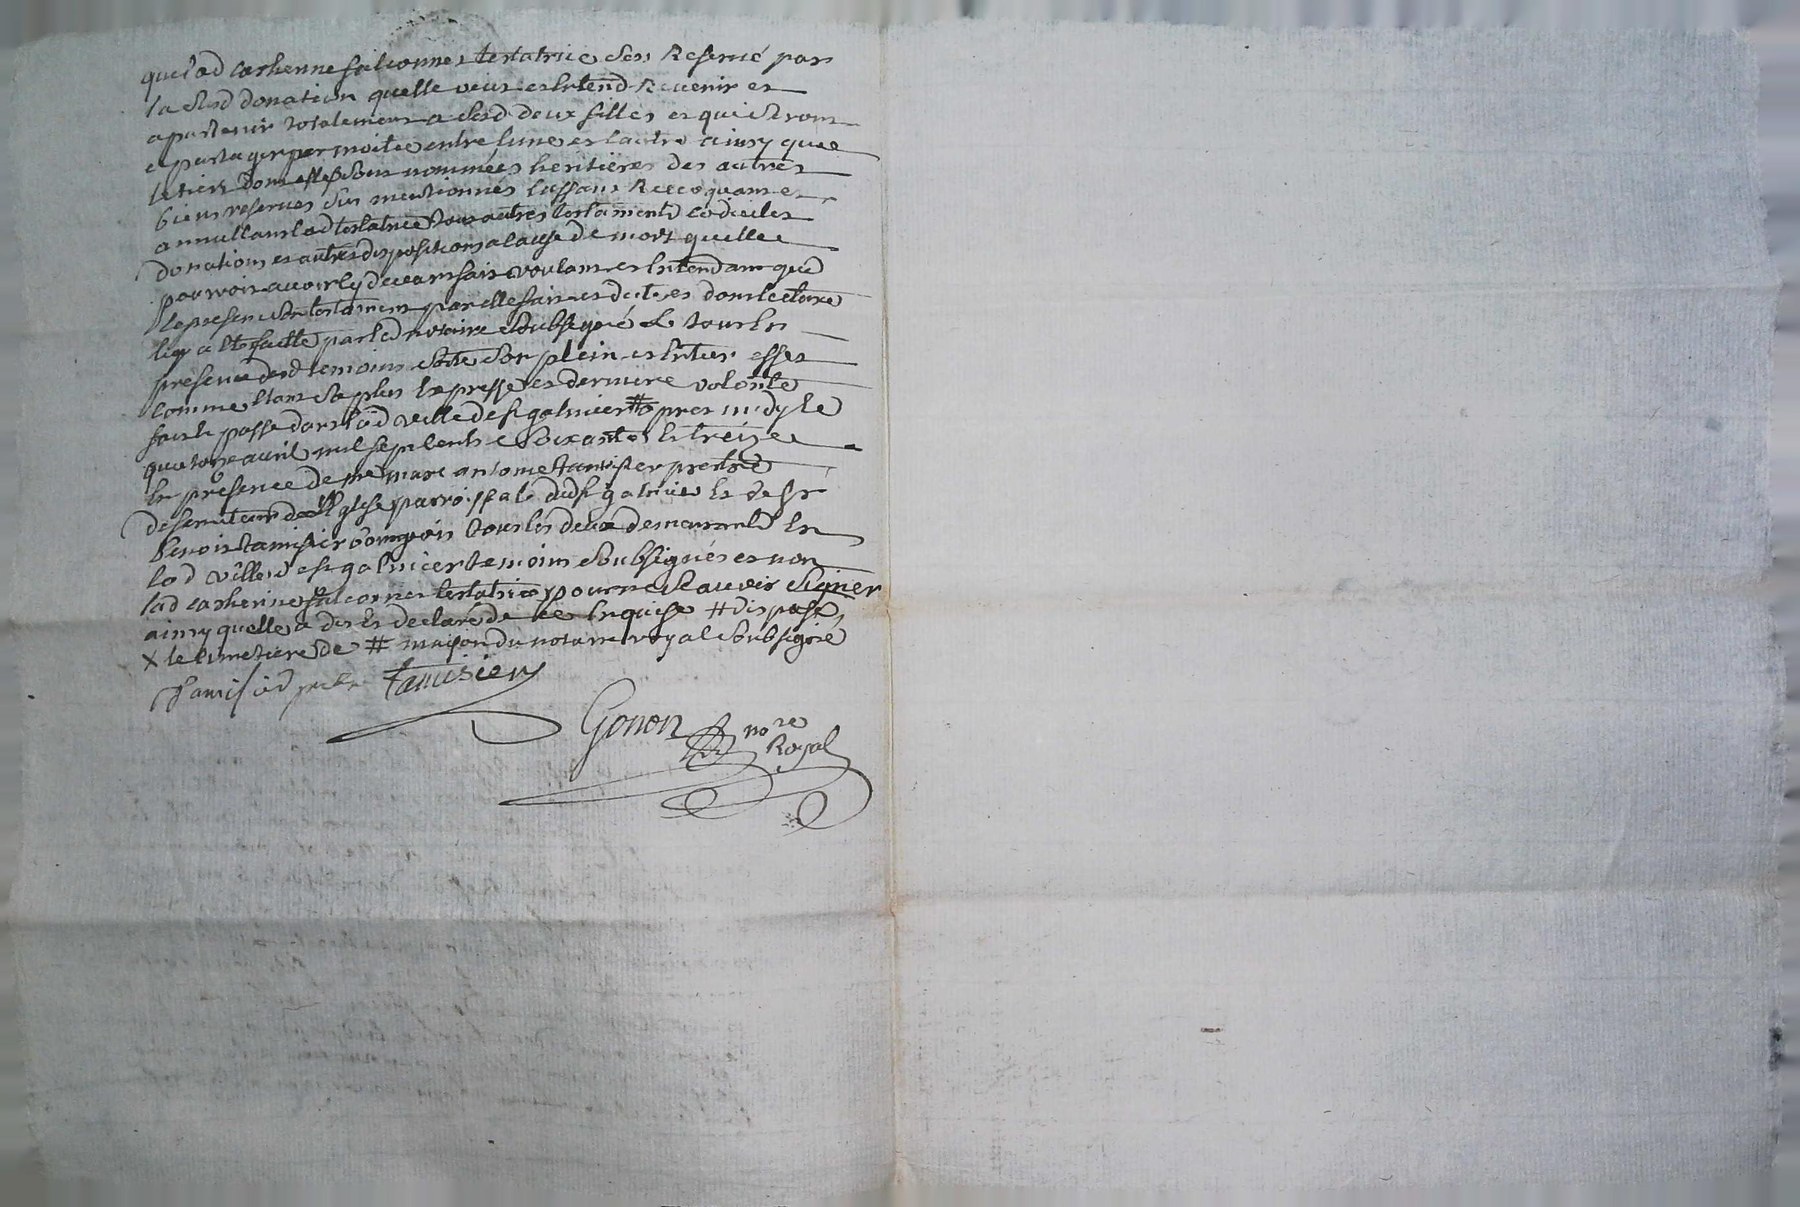 que lad catherine falconnet testatrice sest Reservé par
la susd donation quelle veut et Entend Revenir et
apartenir totalement a sesd deux filles et quictront
et partager par moitié entre lune et lautre ainsy que
le tiers dont elles sont nommées heritieres des autres
biens reserves sus mentionnés Cassant Revoquant et
annullant lad testatrice tous autres testaments codiciles
donations et autres dispositions a cause de mort quelle
pourroit avoir cy devant fait voulant et Entendant que
le present son testament par elle fait et dicté et dont lecture
luy a Eté faitte par led notaire soubsigné Et tous En
presence desd temoins sorte son plein et Entier effet
comme Etant sa plus Expresse et derniere volonté
fait et passé dans lad ville de st galmier # apres midy le
quatorze avril mil sept cents soixante Et treize
En presence de mre marc antoine tamisier prestre
deserviteur de lEglise parroissiale dud st galmier Et de sr
benoit tamisier bourgeois tous les deux demeurants En
lad ville de st galmier temoins soubsignés et non
lad catherine falconnet testatrice pour ne scavoir signer
ainsy quelle a dit Et declaré de ce Enquise #
X le cimetiere de # maison du notaire royal soubsigné
Tamisier
Gonon nore
Royal